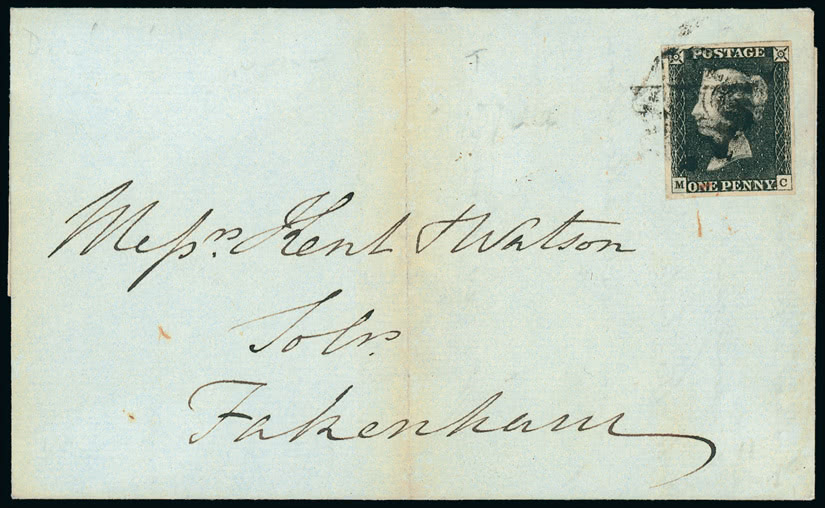 POSTAGE
M ONE PENNY C
Messrs. Kent & Watson
Solrs.
Fakenham